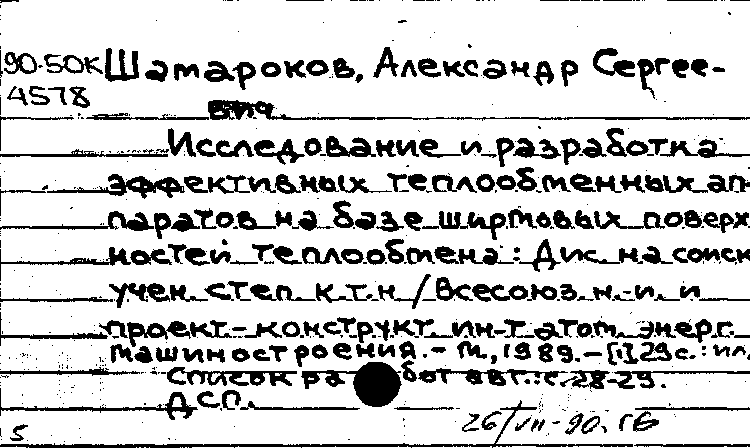 90-50К Шатароков, Александр Сергее-
4578
вич.
Исследование и разработка
эффективных теплообменных ап-
паратов на базе ширмовых поверх
ностей теплообмена: Дис. на соиск
учен. степ. к.т.н / Всесоюз. н.-и. и
проект-конструкт. ин-т атом. энерг.
машиностроения. - М., 1989. - [1], 29 с.: ил,
Список работ авт.: с. 28-29.
ДСП.
26/VII-90. ГБ
5